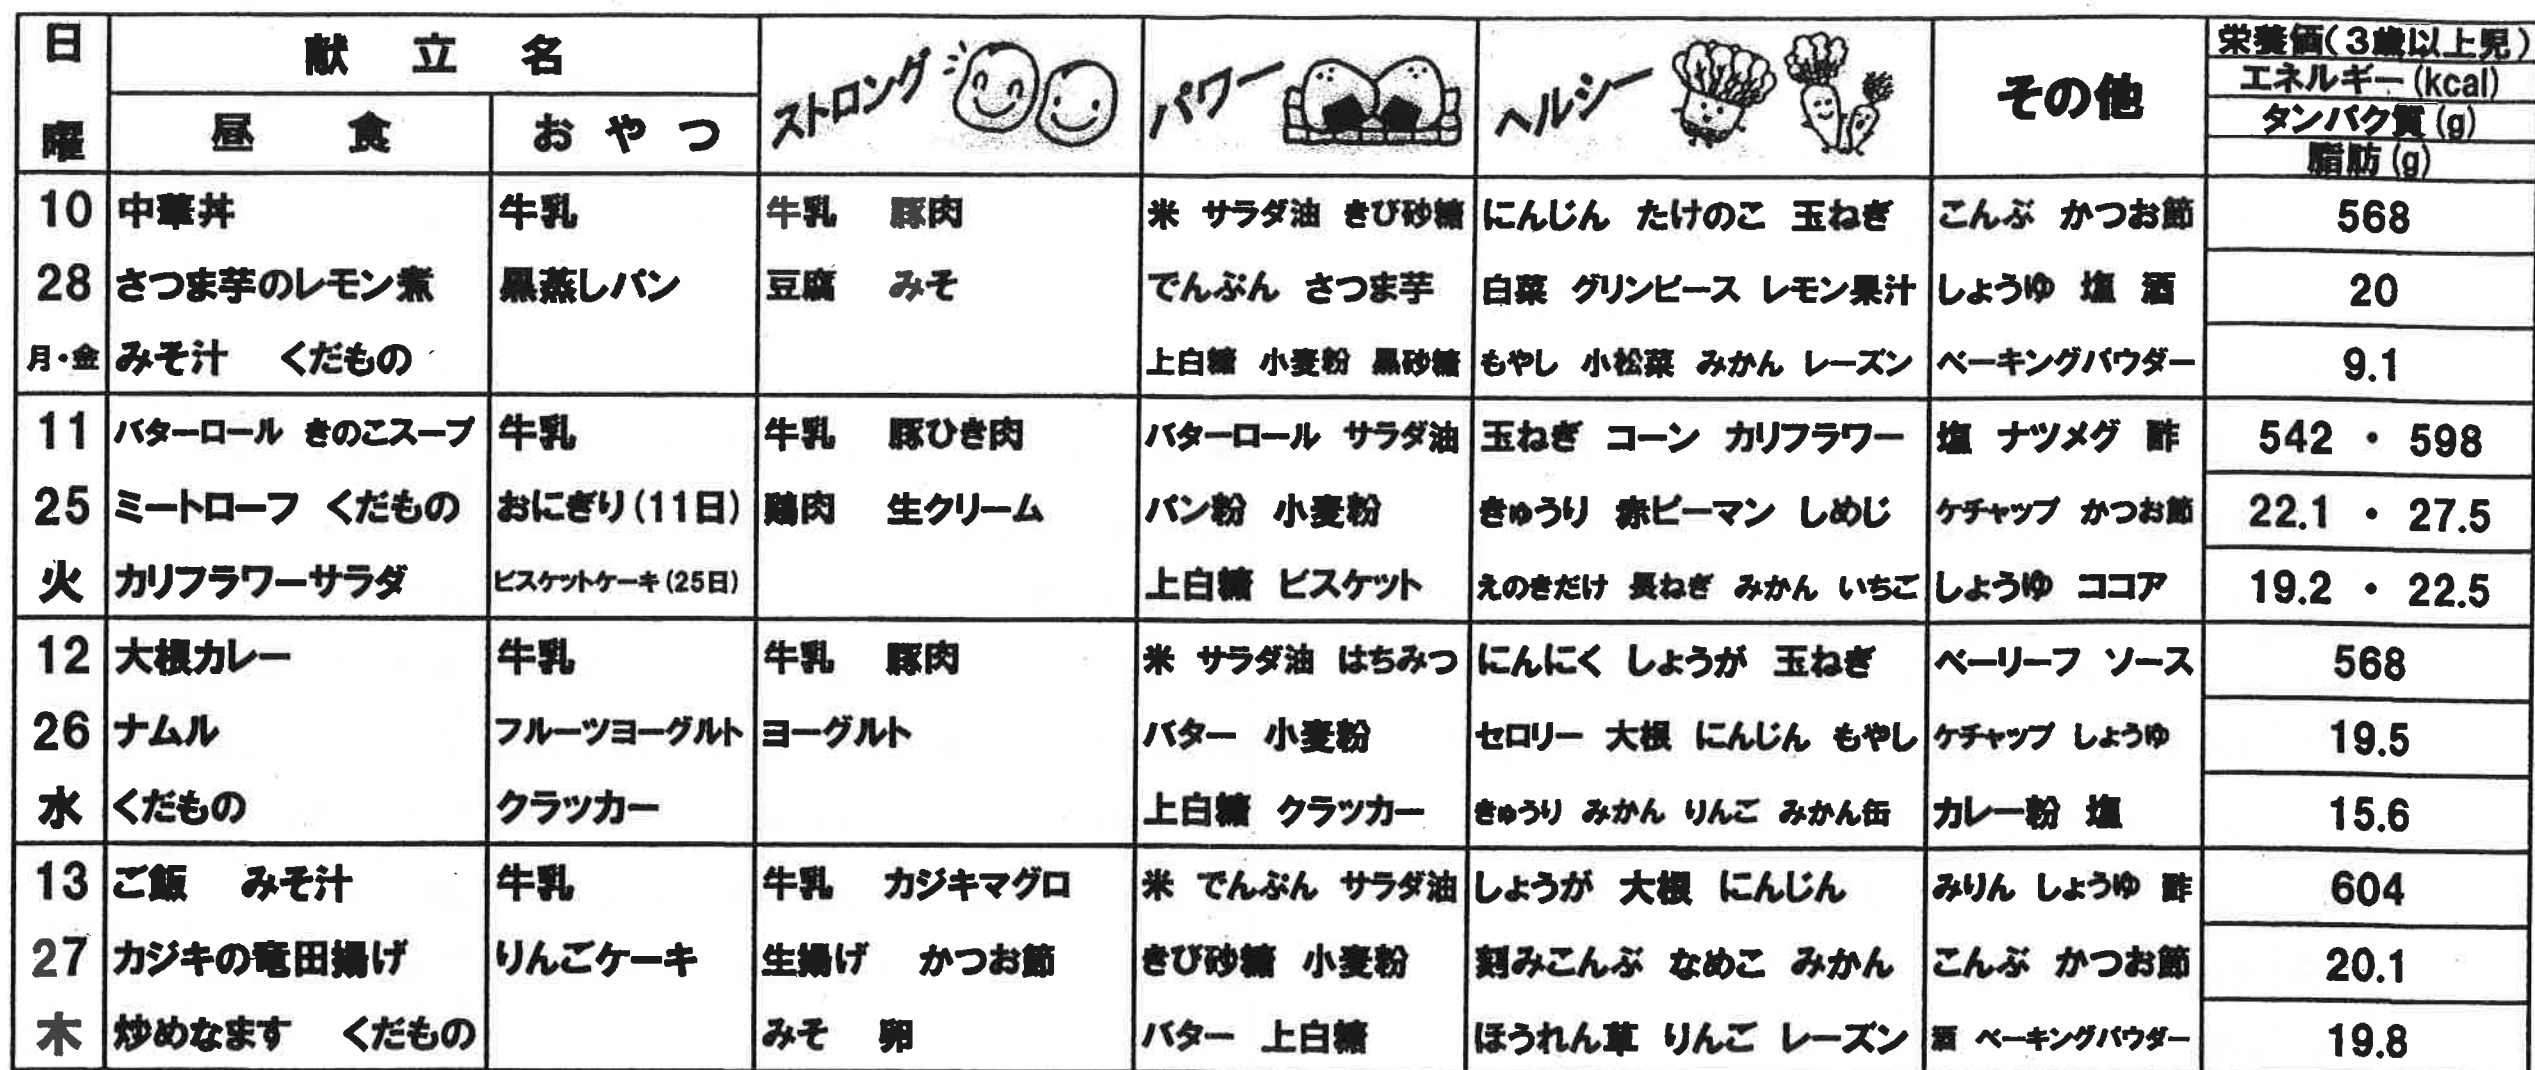 日 曜 献立名 ストロング パワー ヘルシー その他 栄養価(3歳以上児)
エネルギー(kcal)
昼食 おやつ タンパク質(g)
脂肪(g)
10 中華丼 牛乳 牛乳 豚肉 米 サラダ油 きび砂糖 にんじん たけのこ 玉ねぎ こんぶ かつお節 568
28 さつま芋のレモン煮 黒蒸しパン 豆腐 みそ でんぷん さつま芋 白菜 グリンピース レモン果汁 しょうゆ 塩 酒 20
月・金 みそ汁 くだもの 上白糖 小麦粉 黒砂糖 もやし 小松菜 みかん レーズン ベーキングパウダー 9.1
11 バターロール きのこスープ 牛乳 牛乳 豚ひき肉 バターロール サラダ油 玉ねぎ コーン カリフラワー 塩 ナツメグ 酢 542 ・ 598
25 ミートローフ くだもの おにぎり(11日) 鶏肉 生クリーム パン粉 小麦粉 きゅうり 赤ピーマン しめじ ケチャップ かつお節 22.1 ・ 27.5
火 カリフラワーサラダ ビスケットケーキ(25日) 上白糖 ビスケット えのきだけ 長ねぎ みかん いちご しょうゆ ココア 19.2 ・ 22.5
12 大根カレー 牛乳 牛乳 豚肉 米 サラダ油 はちみつ にんにく しょうが 玉ねぎ ベーリーフ ソース 568
26 ナムル フルーツヨーグルト ヨーグルト バター 小麦粉 セロリー 大根 にんじん もやし ケチャップ しょうゆ 19.5
水 くだもの クラッカー 上白糖 クラッカー きゅうり みかん りんご みかん缶 カレー粉 塩 15.6
13 ご飯 みそ汁 牛乳 牛乳 カジキマグロ 米 でんぷん サラダ油 しょうが 大根 にんじん みりん しょうゆ 酢 604
27 カジキの竜田揚げ りんごケーキ 生揚げ かつお節 きび砂糖 小麦粉 刻みこんぶ なめこ みかん こんぶ かつお節 20.1
木 炒めなます くだもの みそ 卵 バター 上白糖 ほうれん草 りんご レーズン 酒 ベーキングパウダー 19.8